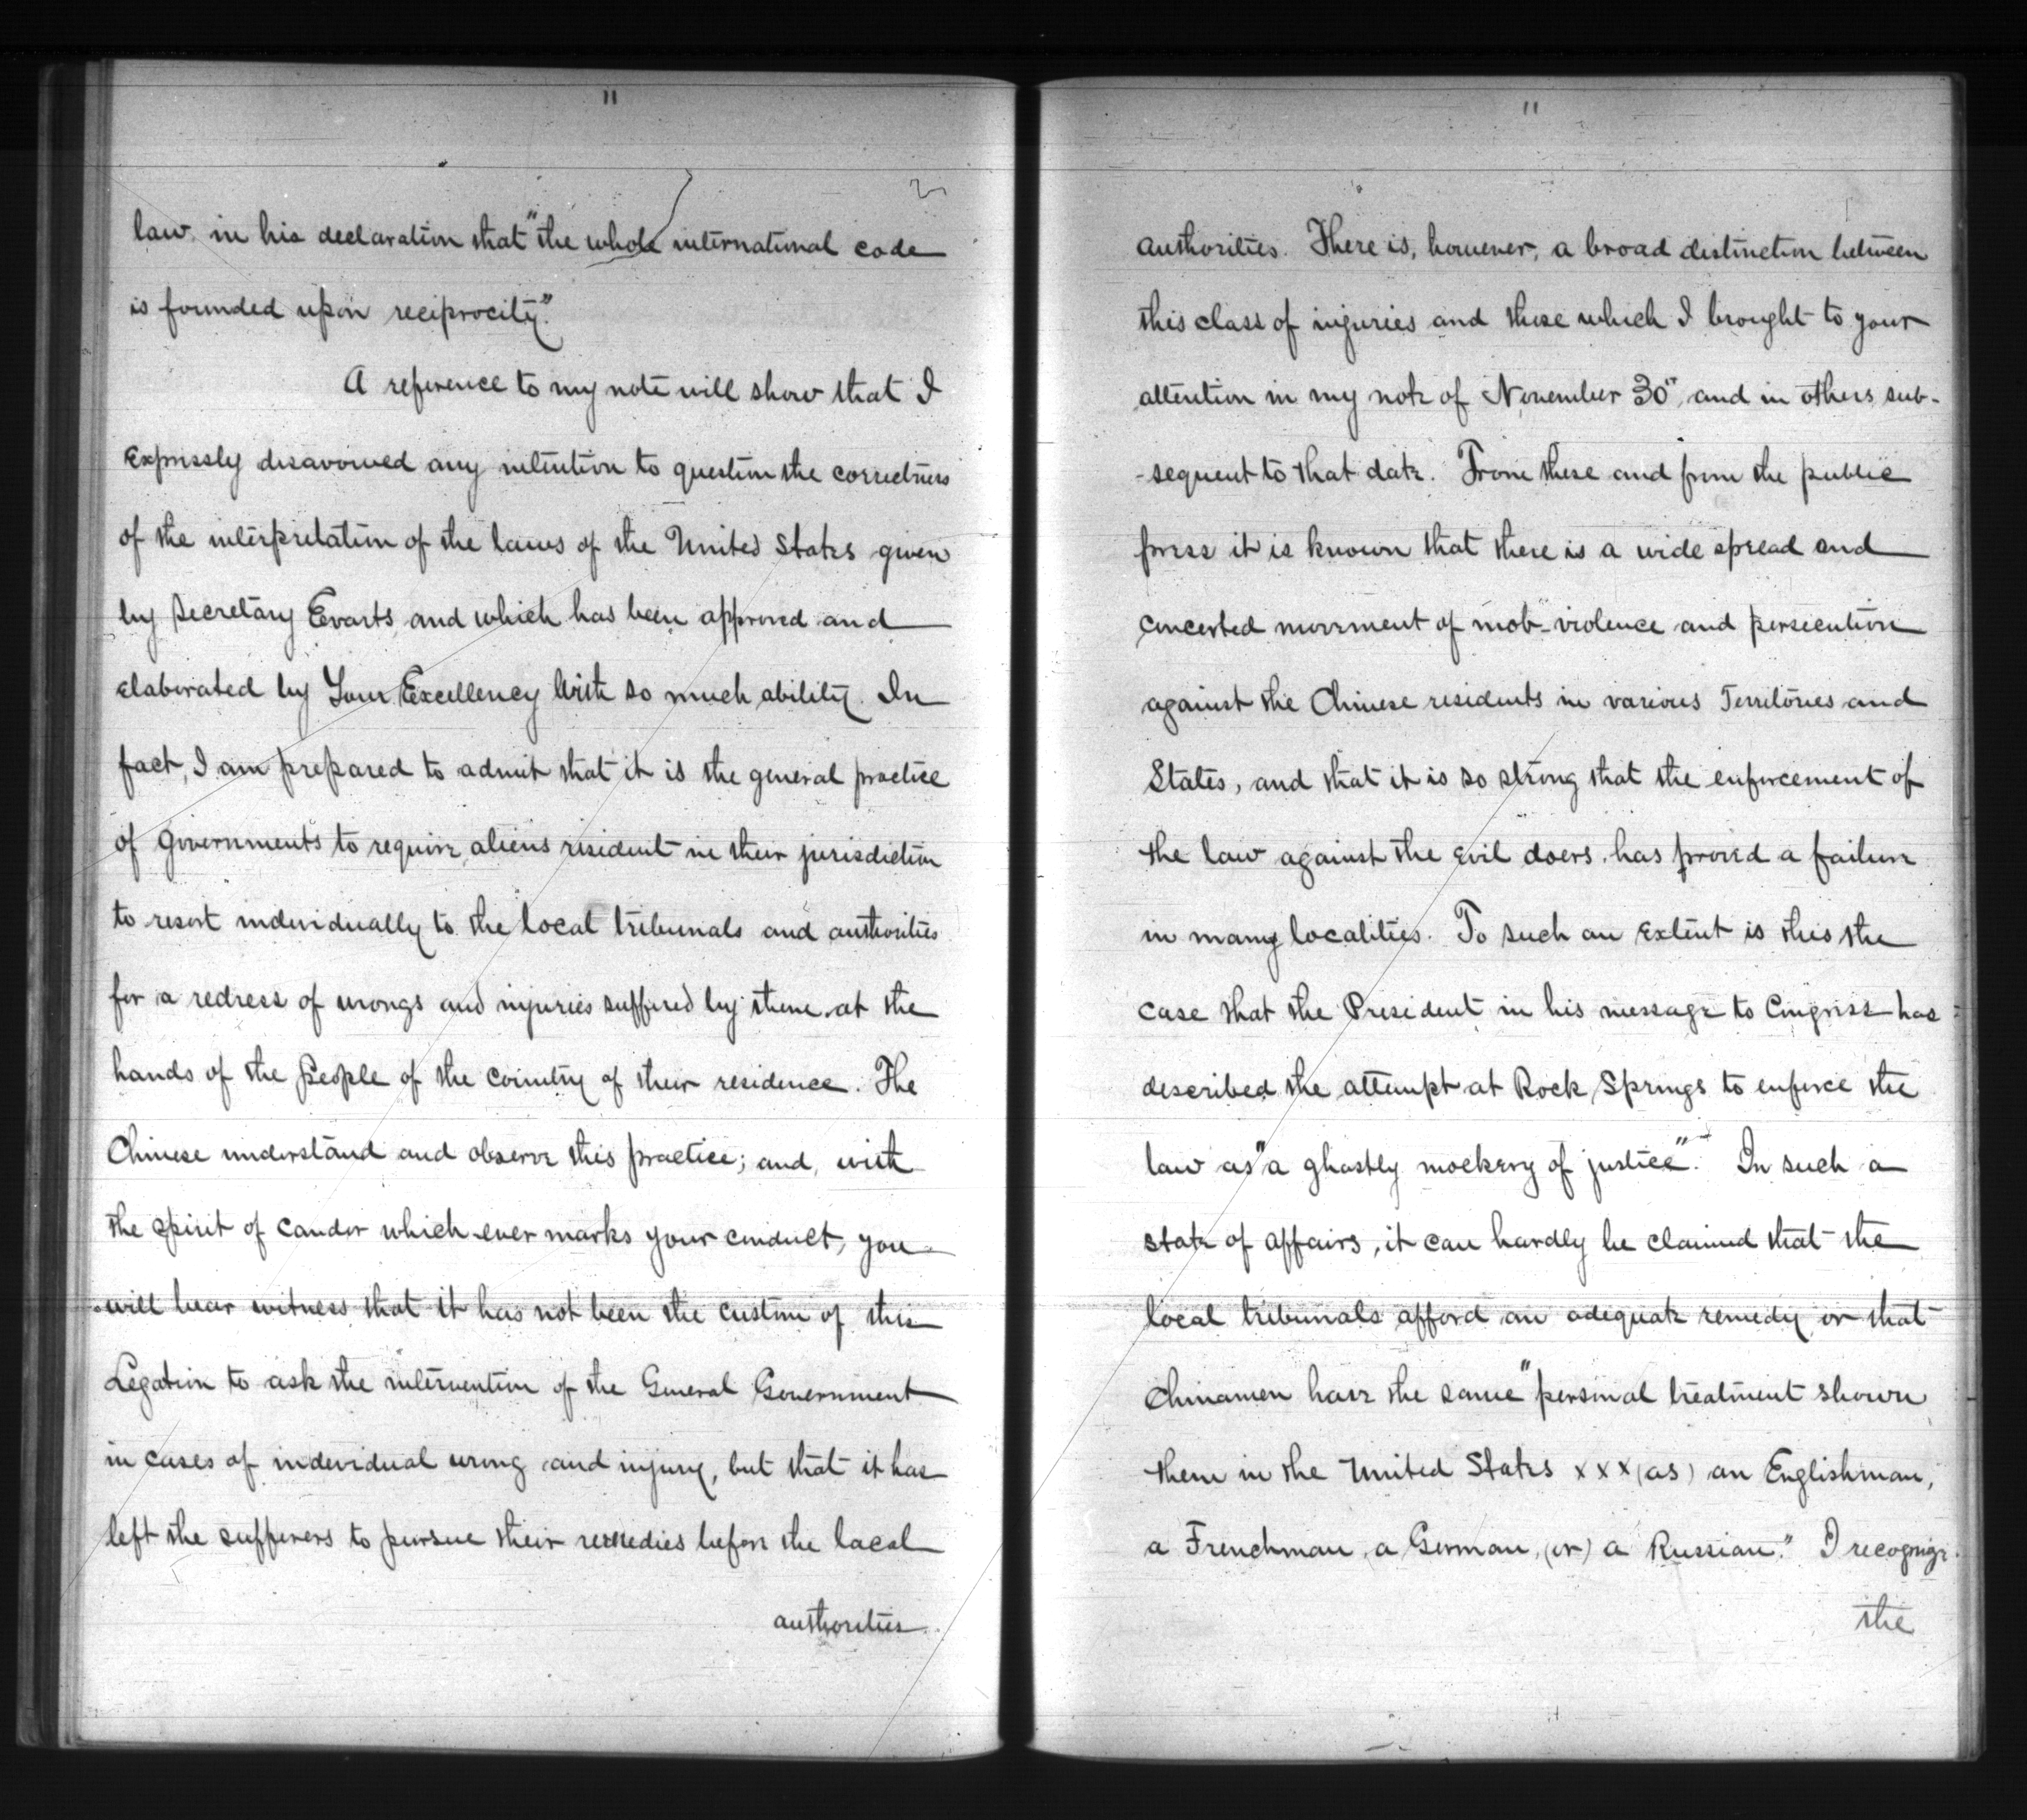 "
law in his declaration that "the whole international code
is founded upon reciprocity."
A reference to my note will show that I
expressly disavowed any intention to question the correctness
of the interpretation of the laws of the United States given
by Secretary Evarts, and which has been approved and
elaborated by Your Excellency with so much ability. In
fact, I am prepared to admit that it is the general practice
of Governments to require aliens resident in their jurisdiction
to resort individually to the local tribunals and authorities
for a redress of wrongs and injuries suffered by them at the
hands of the people of the country of their residence. The
Chinese understand and observe this practice; and, with
the spirit of candor which ever marks your conduct, you
will bear witness that it has not been the custom of this
Legation to ask the intervention of the General Government
in cases of individual wrong and injury, but that it has
left the sufferers to pursue their remedies before the local
authorities
"
authorities. There is, however, a broad distinction between
this class of injuries and those which I brought to your
attention in my note of November 30", and in others sub-
-sequent to that date. From these and from the public
press it is known that there is a wide spread and
concerted movement of mob-violence and persecution
against the Chinese residents in various Territories and
States, and that it is so strong that the enforcement of
the law against the evil doers has proved a failure
in many localities. To such an extent is this the
case that the President in his message to Congress has
described the attempt at Rock Springs to enforce the
law as "a ghastly mockery of justice". In such a
state of affairs, it can hardly be claimed that the
local tribunals afford an adequate remedy or that
Chinamen have the same "personal treatment shown
them in the United States x x x (as) an Englishman,
a Frenchman, a German, (or) a Russian." I recognize
the